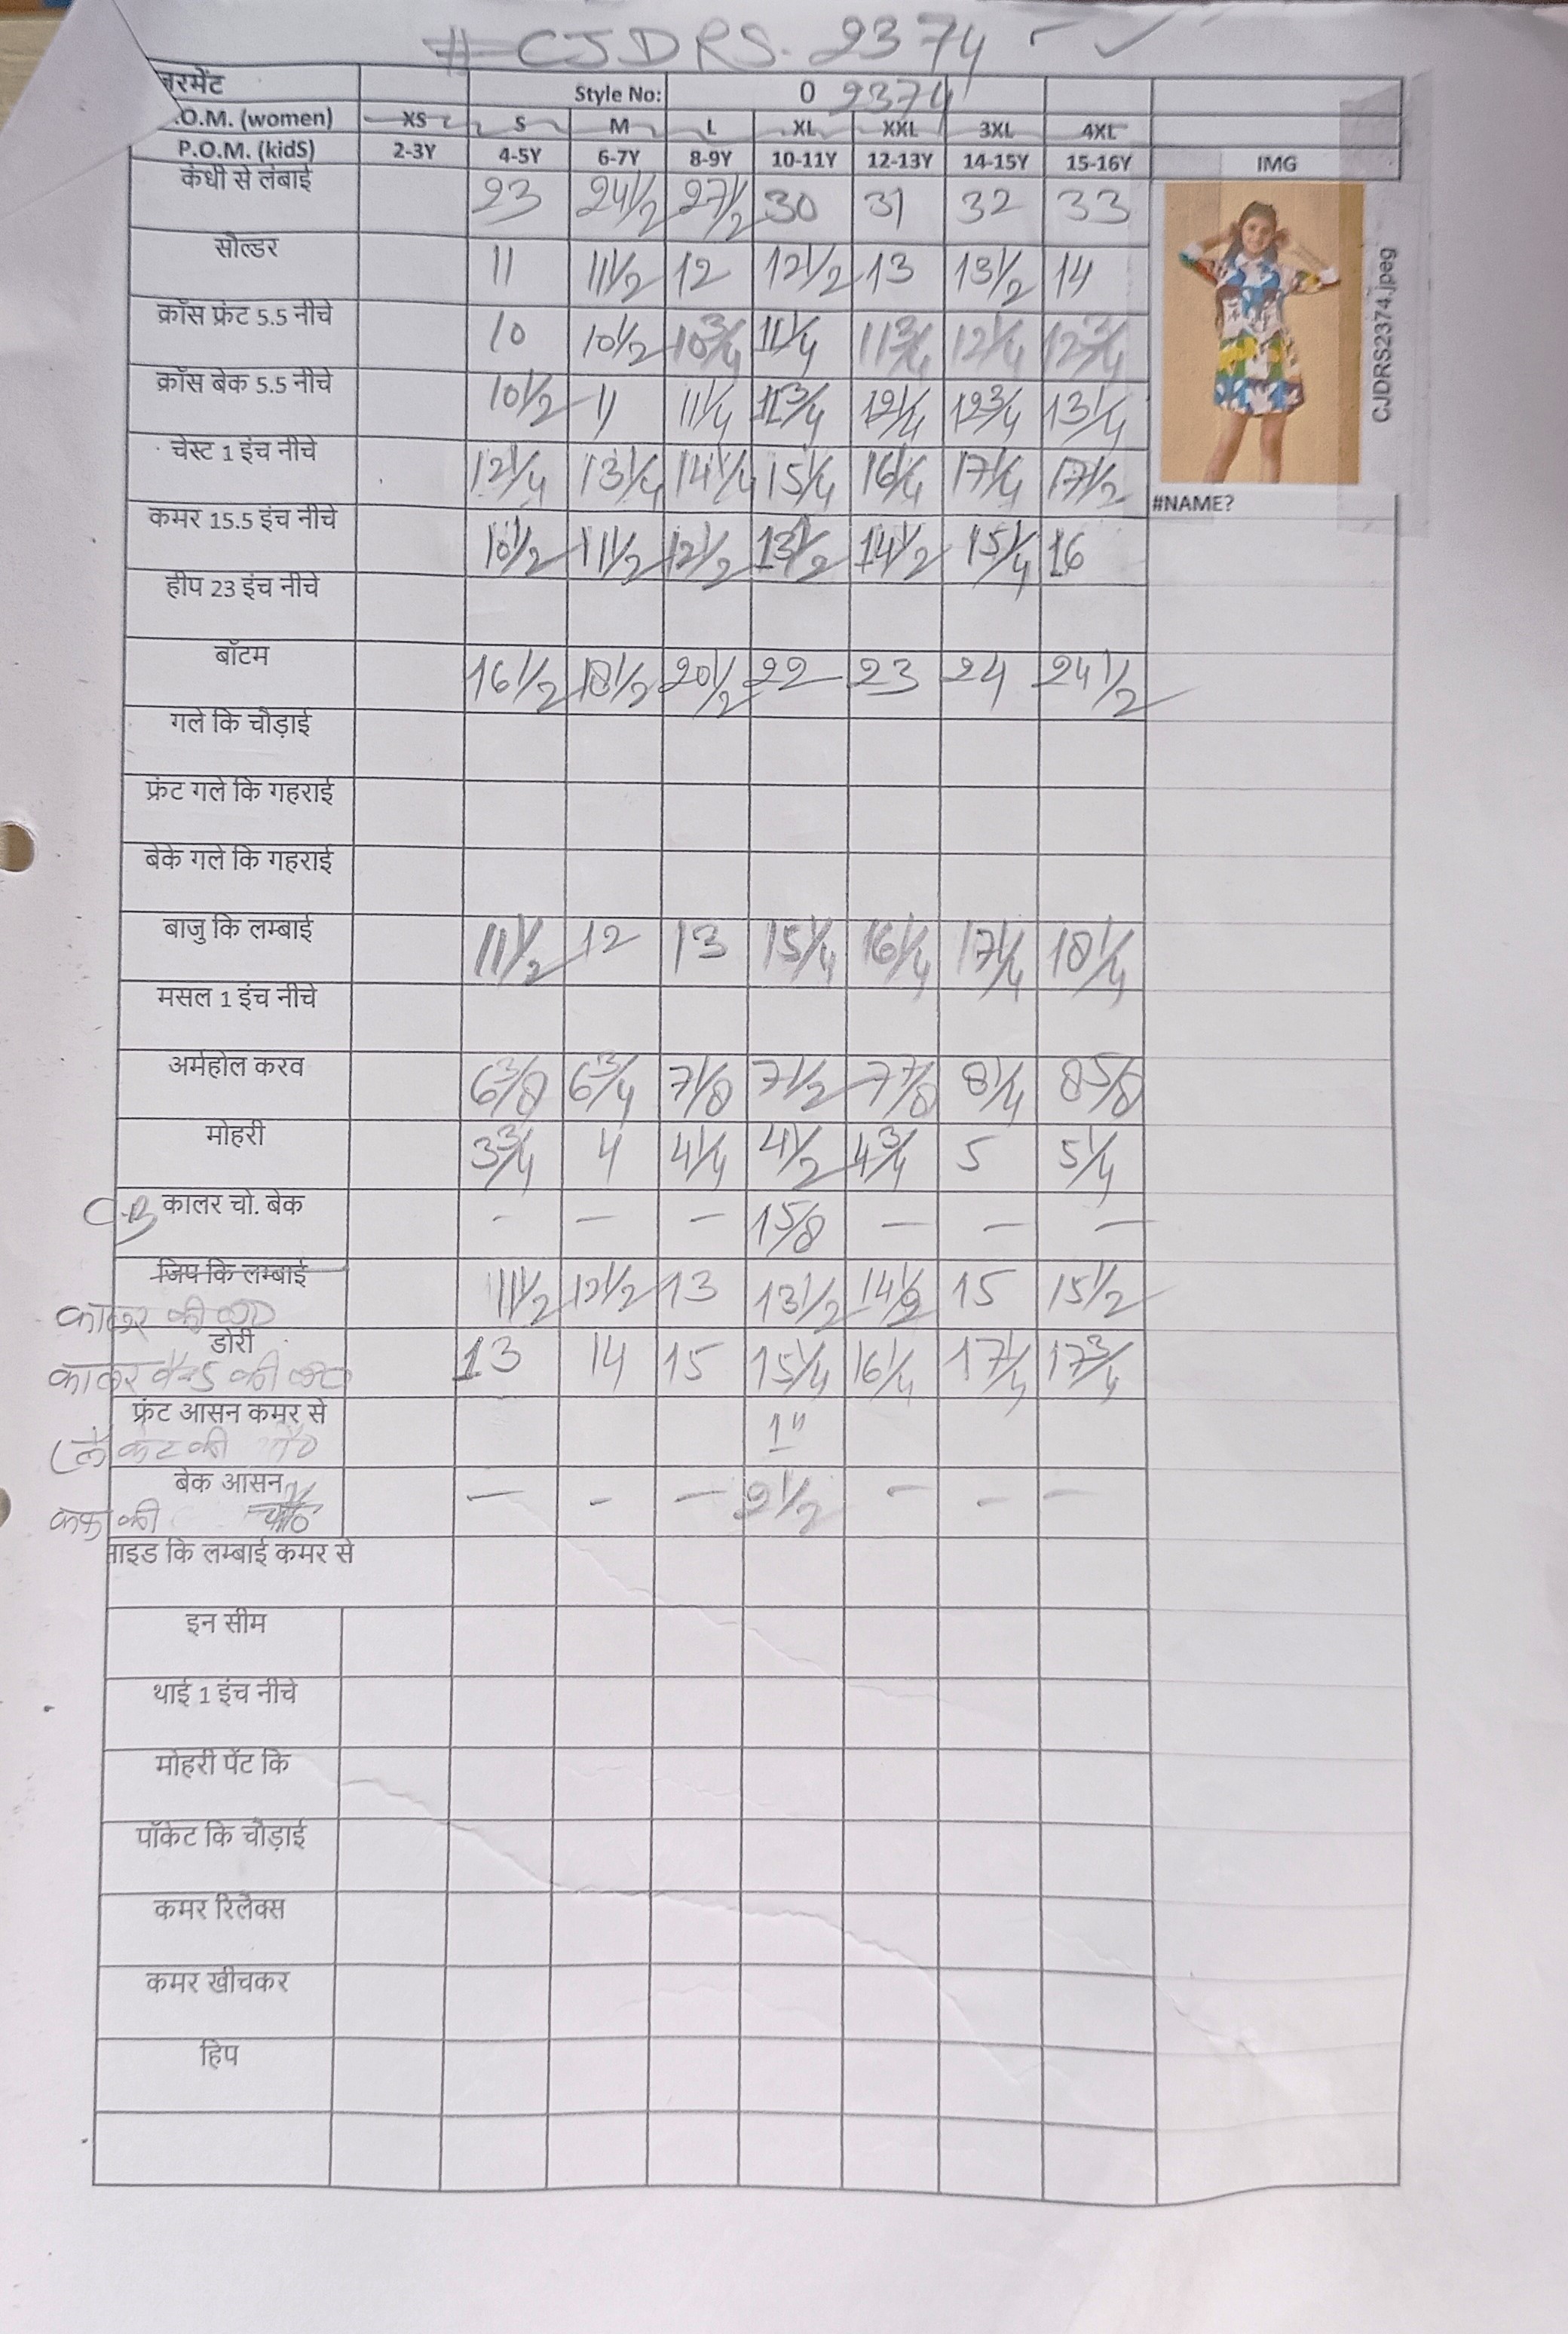 # CJDRS. 2374
रमेंट Style No: 0 2374
.O.M. (women) XS S M L XL XXL 3XL 4XL
P.O.M. (kidS) 2-3Y 4-5Y 6-7Y 8-9Y 10-11Y 12-13Y 14-15Y 15-16Y IMG
कंधी से लंबाई 23 24 1/2 27 1/2 30 31 32 33
सोल्डर 11 11 1/2 12 12 1/2 13 13 1/2 14
क्रॉस फ्रंट 5.5 नीचे 10 10 1/2 10 3/4 11 1/4 11 3/4 12 1/4 12 3/4
क्रॉस बेक 5.5 नीचे 10 1/2 11 11 1/4 11 3/4 12 1/4 12 3/4 13 1/4
CJDRS2374.jpeg
चेस्ट 1 इंच नीचे 12 1/4 13 1/4 14 1/4 15 1/4 16 1/4 17 1/4 17 1/2
#NAME?
कमर 15.5 इंच नीचे 10 1/2 11 1/2 12 1/2 13 1/2 14 1/2 15 1/4 16
हीप 23 इंच नीचे
बॉटम 16 1/2 18 1/2 20 1/2 22 23 24 24 1/2
गले कि चौड़ाई
फ्रंट गले कि गहराई
बेके गले कि गहराई
बाजु कि लम्बाई 11 1/2 12 13 15 1/4 16 1/4 17 1/4 18 1/4
मसल 1 इंच नीचे
अर्महोल करव 6 3/8 6 3/4 7 1/8 7 1/2 7 7/8 8 1/4 8 5/8
मोहरी 3 3/4 4 4 1/4 4 1/2 4 3/4 5 5 1/4
C.B कालर चो. बेक - - - 1 5/8 - - -
जिप कि लम्बाई 11 1/2 12 1/2 13 13 1/2 14 1/2 15 15 1/2
कालर की
डोरी 13 14 15 15 1/4 16 1/4 17 1/4 17 3/4
कालर की
फ्रंट आसन कमर से 1"
की
बेक आसन - - - 2 1/2 - - -
कफ की
साइड कि लम्बाई कमर से
इन सीम
थाई 1 इंच नीचे
मोहरी पेंट कि
पॉकेट कि चौड़ाई
कमर रिलैक्स
कमर खीचकर
हिप